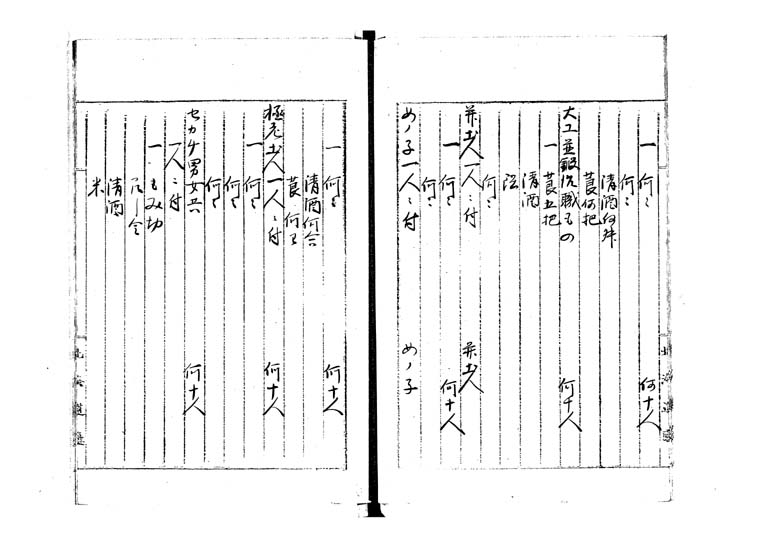 一 何々 何十人
何々
清酒何舛
莨何把
大工並鍛冶職もの 何十人
一 莨五把
清酒
何々
并土人一人ニ付 并土人
一 何々 何十人
何々
めノ子一人ニ付 めノ子
一 何々 何十人
清酒何合
莨何
極老土人一人ニ付 何十人
一 何々
何々
何々
セカチ男女共 何十人
一人ニ付
一 もみ切
清酒
米
北海道庁